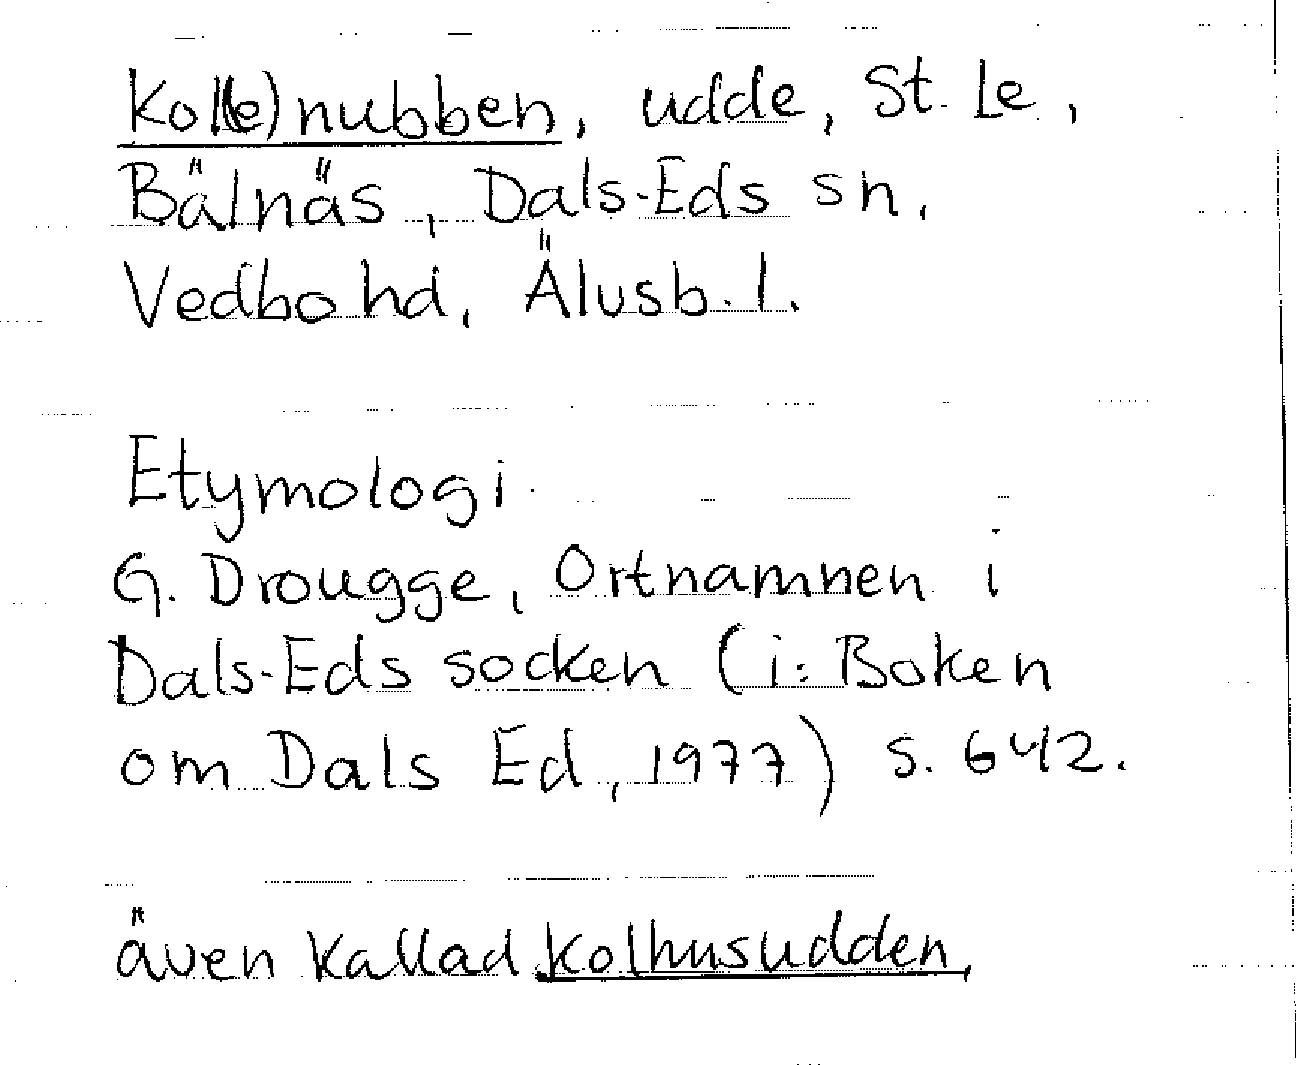 Kol(le)nubben, udde, St. Le,
Bälnäs, Dals-Eds sn,
Vedbo hd, Älvsb. l.
Etymologi
G. Drougge, Ortnamnen i
Dals-Eds socken (i: Boken
om Dals Ed, 1977) s. 642.
även kallad Kolhusudden,